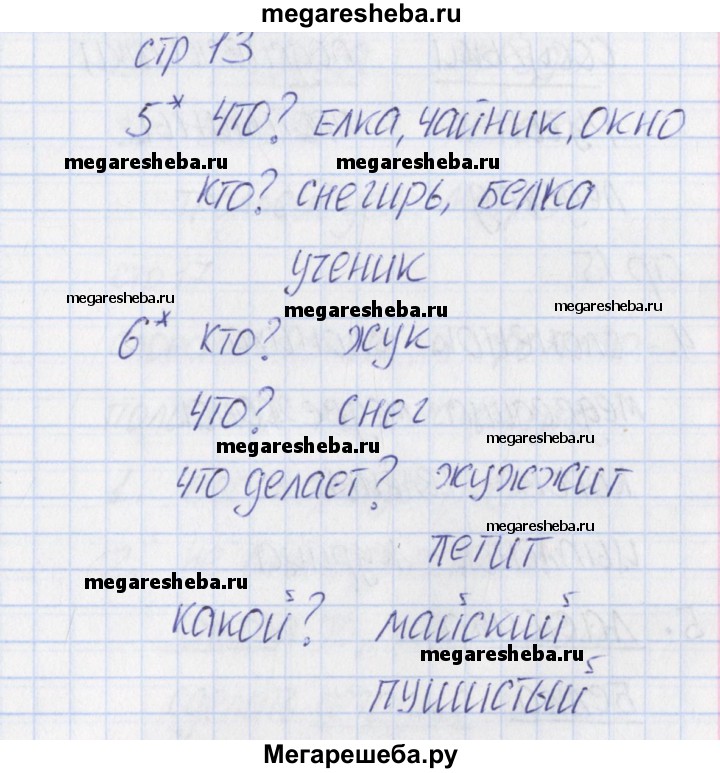 megaresheba.ru
стр 13
5* что? ЕЛКА, ЧАЙНИК, ОКНО
megaresheba.ru megaresheba.ru
кто? снегирь, белка
ученик
megaresheba.ru megaresheba.ru megaresheba.ru
6* кто? жук
что? снег
megaresheba.ru megaresheba.ru
что делает? жужжит
megaresheba.ru
летит
megaresheba.ru
какой? майский
megaresheba.ru
пушистый
Мегарешеба.ру